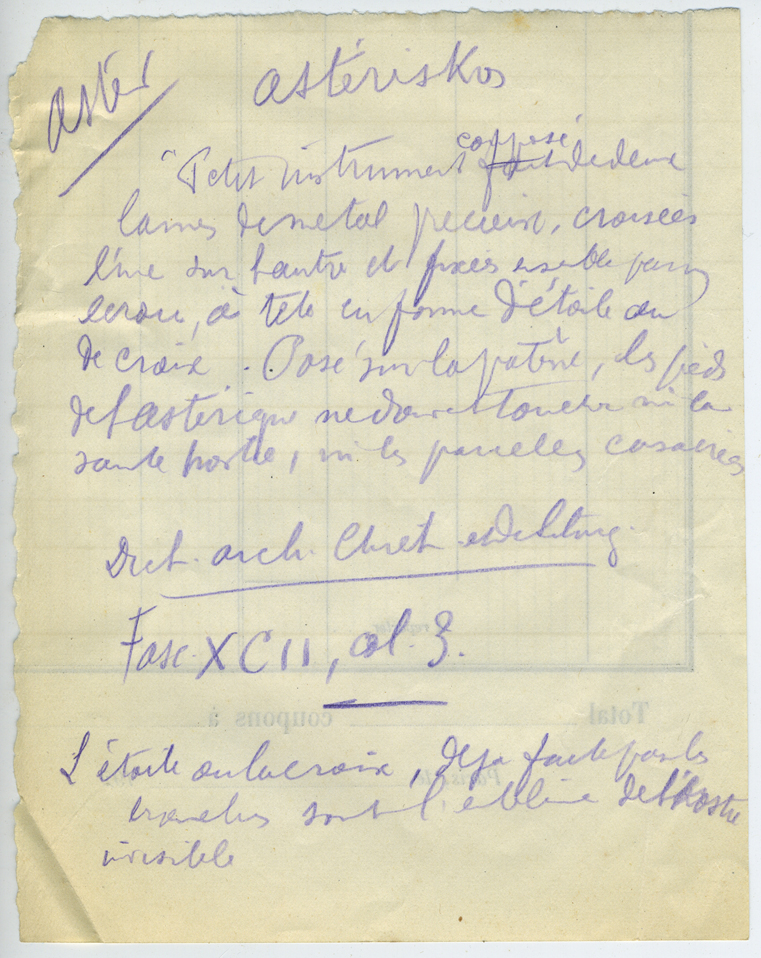 astér
astériskos
composé
"Petit instrument fait de deux
lames de métal précieux, croisées
l'une sur l'autre et fixées ensemble par un
écrou, à tête en forme d'étoile ou
de croix. Posé sur la patène, les pieds
de l'astérique ne doivent toucher ni la
sainte hostie, ni les parcelles consacrées
Dict. arch. Chret. et de Liturg.
Fasc XCII, col. 3.
Total coupons à
L'étoile ou la croix, déjà faite par les
branches sont l' de l'hostie
invisible